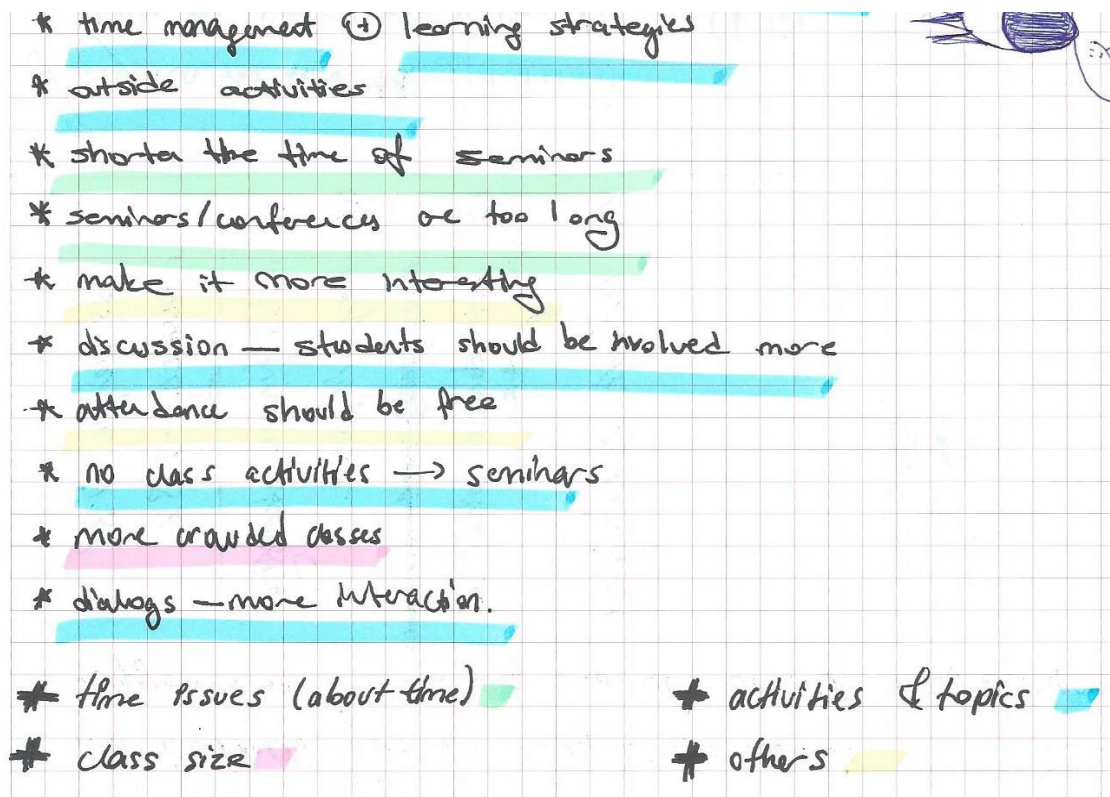 * time management (+) learning strategies
* outside activities
* shorter the time of seminars
* seminars/conferences are too long
* make it more interesting
* discussion — students should be involved more
* attendance should be free
* no class activities → seminars
* more crowded classes
* dialogs — more interaction.
* time issues (about time)
* activities & topics
* class size
* others